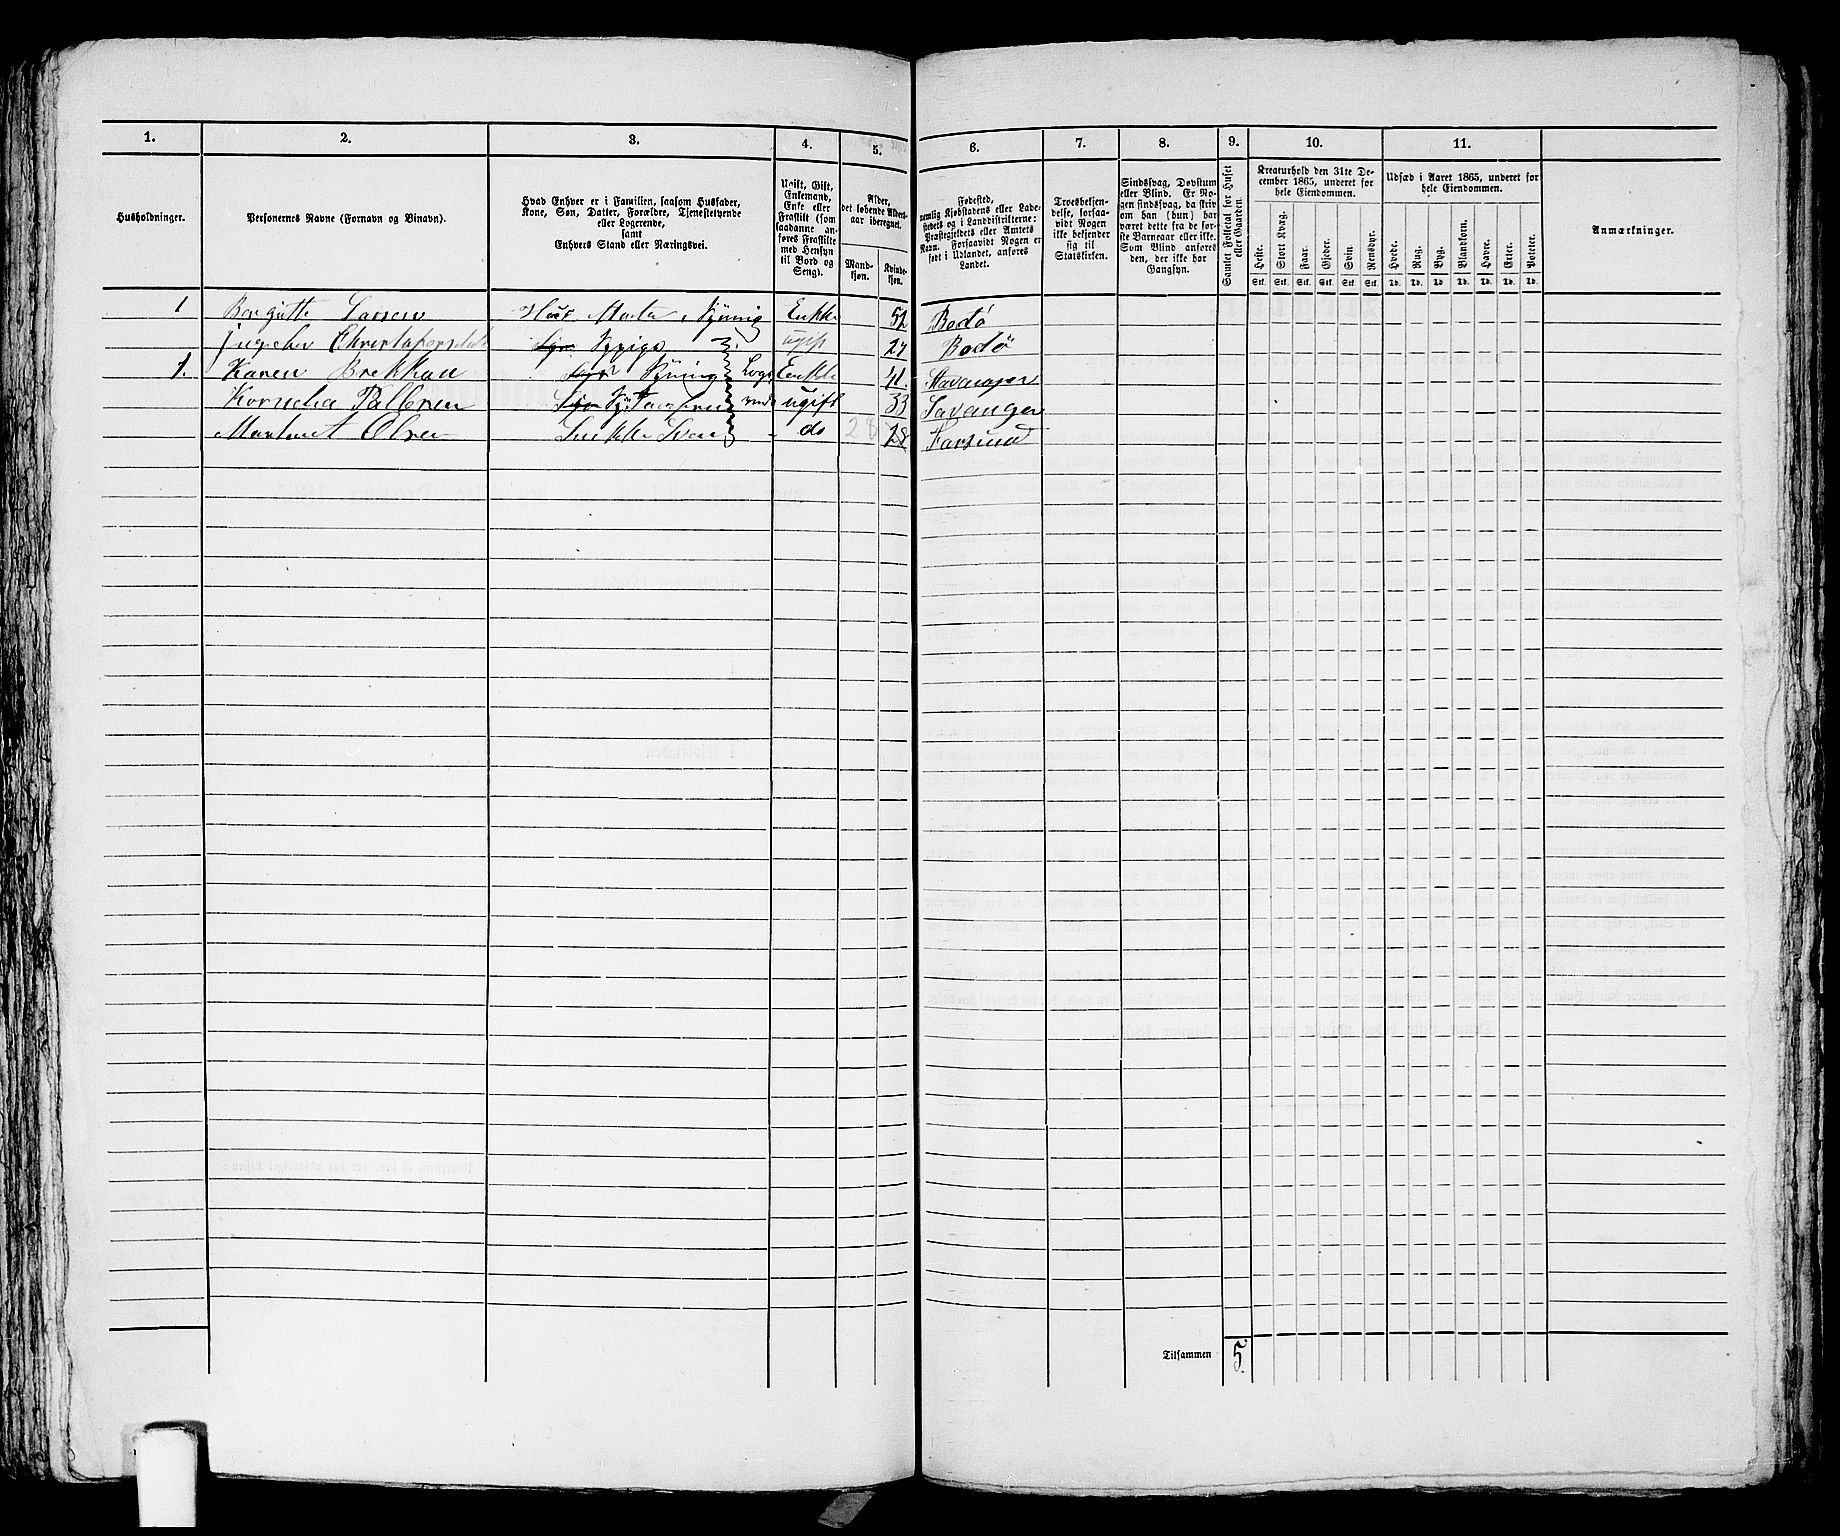 1. 2. 3. 4. 5. 6. 7. 8. 9. 10. 11.
Husholdninger.
Personernes Navne (Fornavn og Binavn).
Hvad Enhver er i Familien, saasom Husfader,
Kone, Søn, Datter, Forældre, Tjenestetyende
eller Logerende,
samt
Enhvers Stand eller Næringsvei.
Ugift, Gift,
Enkemand,
Enke eller
Fraskilt (som
saadanne an-
føres Fraskilte
med Hensyn
til Bord og
Seng).
Alder,
det løbende Alders-
aar iberegnet.
Mand-
kjøn.
Kvinde-
kjøn.
Fødested,
nemlig Kjøbstadens eller Lade-
stedets og i Landdistrikterne:
Præstegjeldets eller Amtets
Navn. Forsaavidt Nogen er
født i Udlandet, anføres
Landet.
Troesbekjen-
delse, forsaa-
vidt Nogen
ikke bekjender
sig til
Statskirken.
Sindssvag, Døvstum
eller Blind. Er No-
gen sindssvag, da skriv
om han (hun) har
været dette fra de før-
ste Barneaar eller ikke.
Som Blind anføres
den, der ikke har
Gangsyn.
Samlet Folketal for Huset
eller Gaarden.
Kreaturhold den 31te De-
cember 1865, underet for
hele Eiendommen.
Heste. Stort Kvæg. Faar. Gjeder. Svin. Rensdyr.
Stk. Stk. Stk. Stk. Stk. Stk.
Udsæd i Aaret 1865, underet for
hele Eiendommen.
Hvede. Rug. Byg. Blandkorn. Havre. Erter. Poteter.
Td. Td. Td. Td. Td. Td. Td.
Anmærkninger.
1 Larsen Enke 52 Bodö
ugift 27 Bodö
1. Karen Brekkan Syning Enke 41. Stavanger
ugift 33 Savanger
Olsen do 28 28 Farsund
Tilsammen 5.